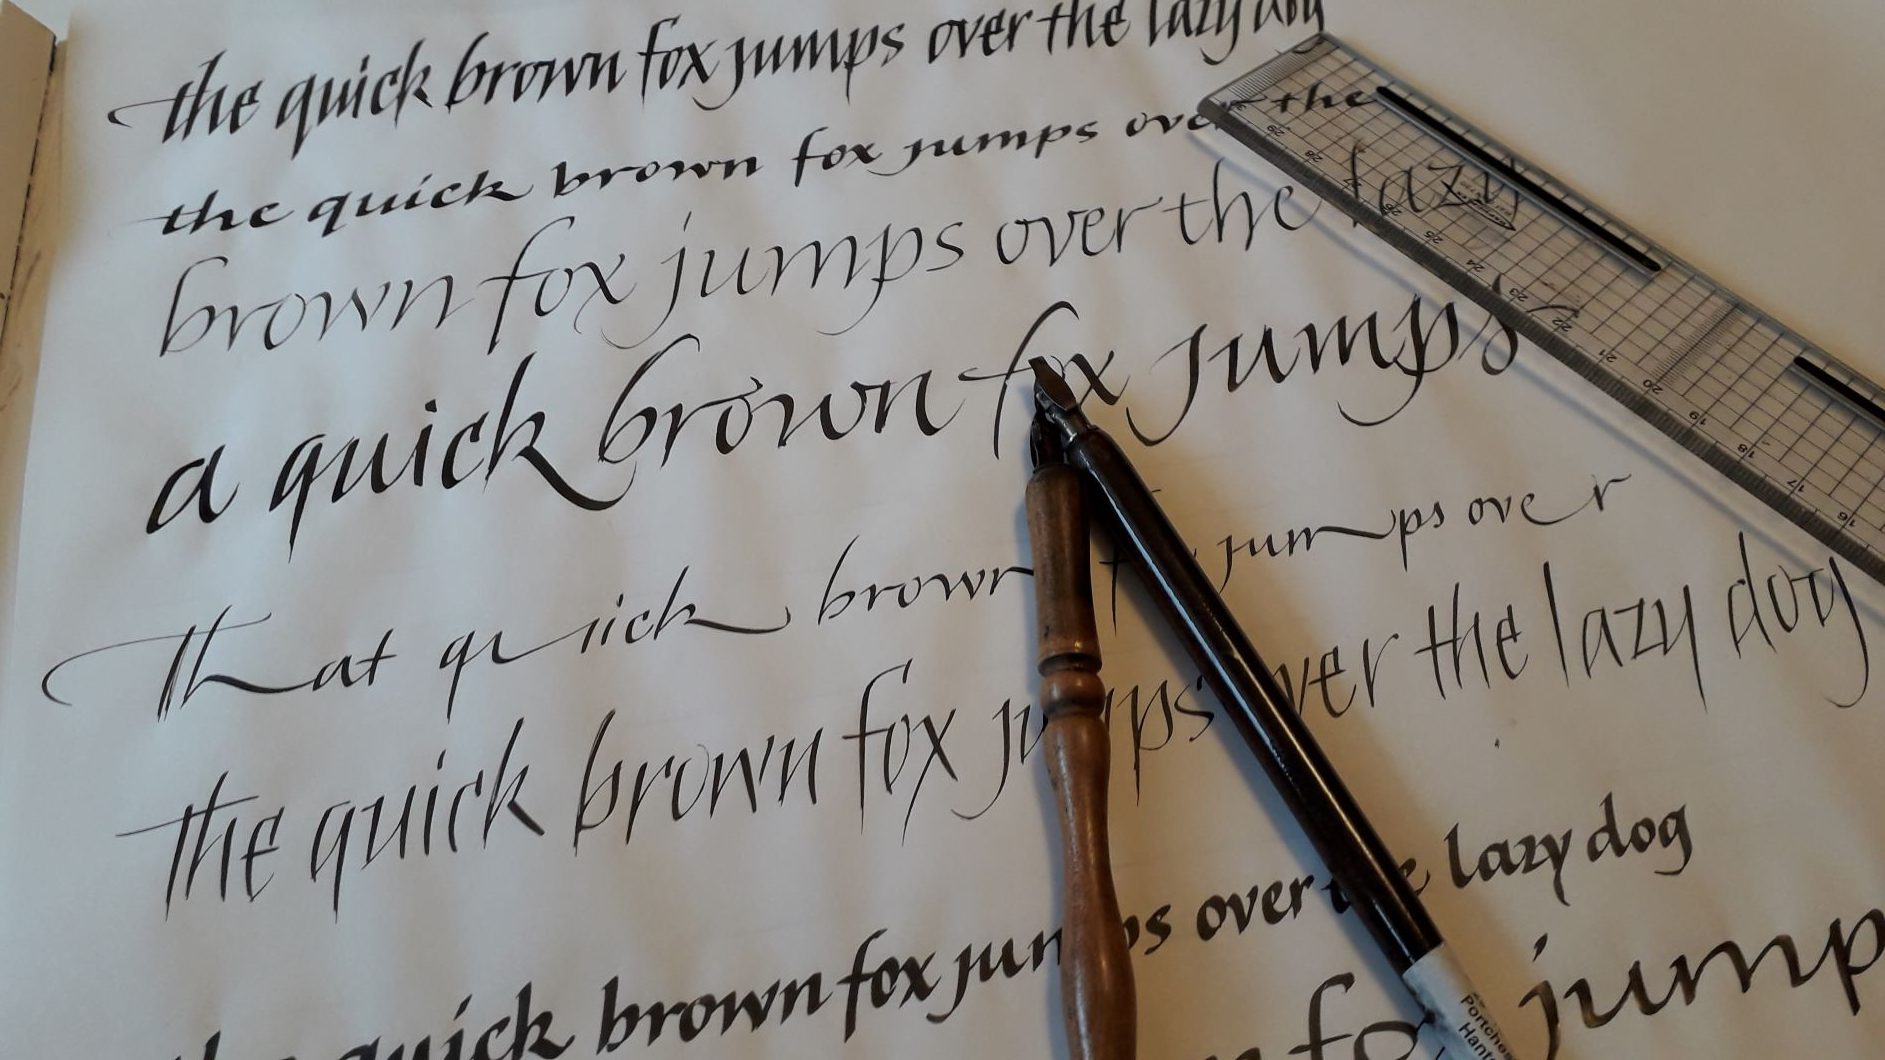 the quick brown fox jumps over the lazy dog
the quick brown fox jumps over the
brown fox jumps over the lazy
a quick brown fox jumps
that quick brown jumps over
the quick brown fox jumps over the lazy dog
quick brown fox jumps over the lazy dog
fox jump
29 28 27 26 25 24 23 22 21 20 19 18 17 16